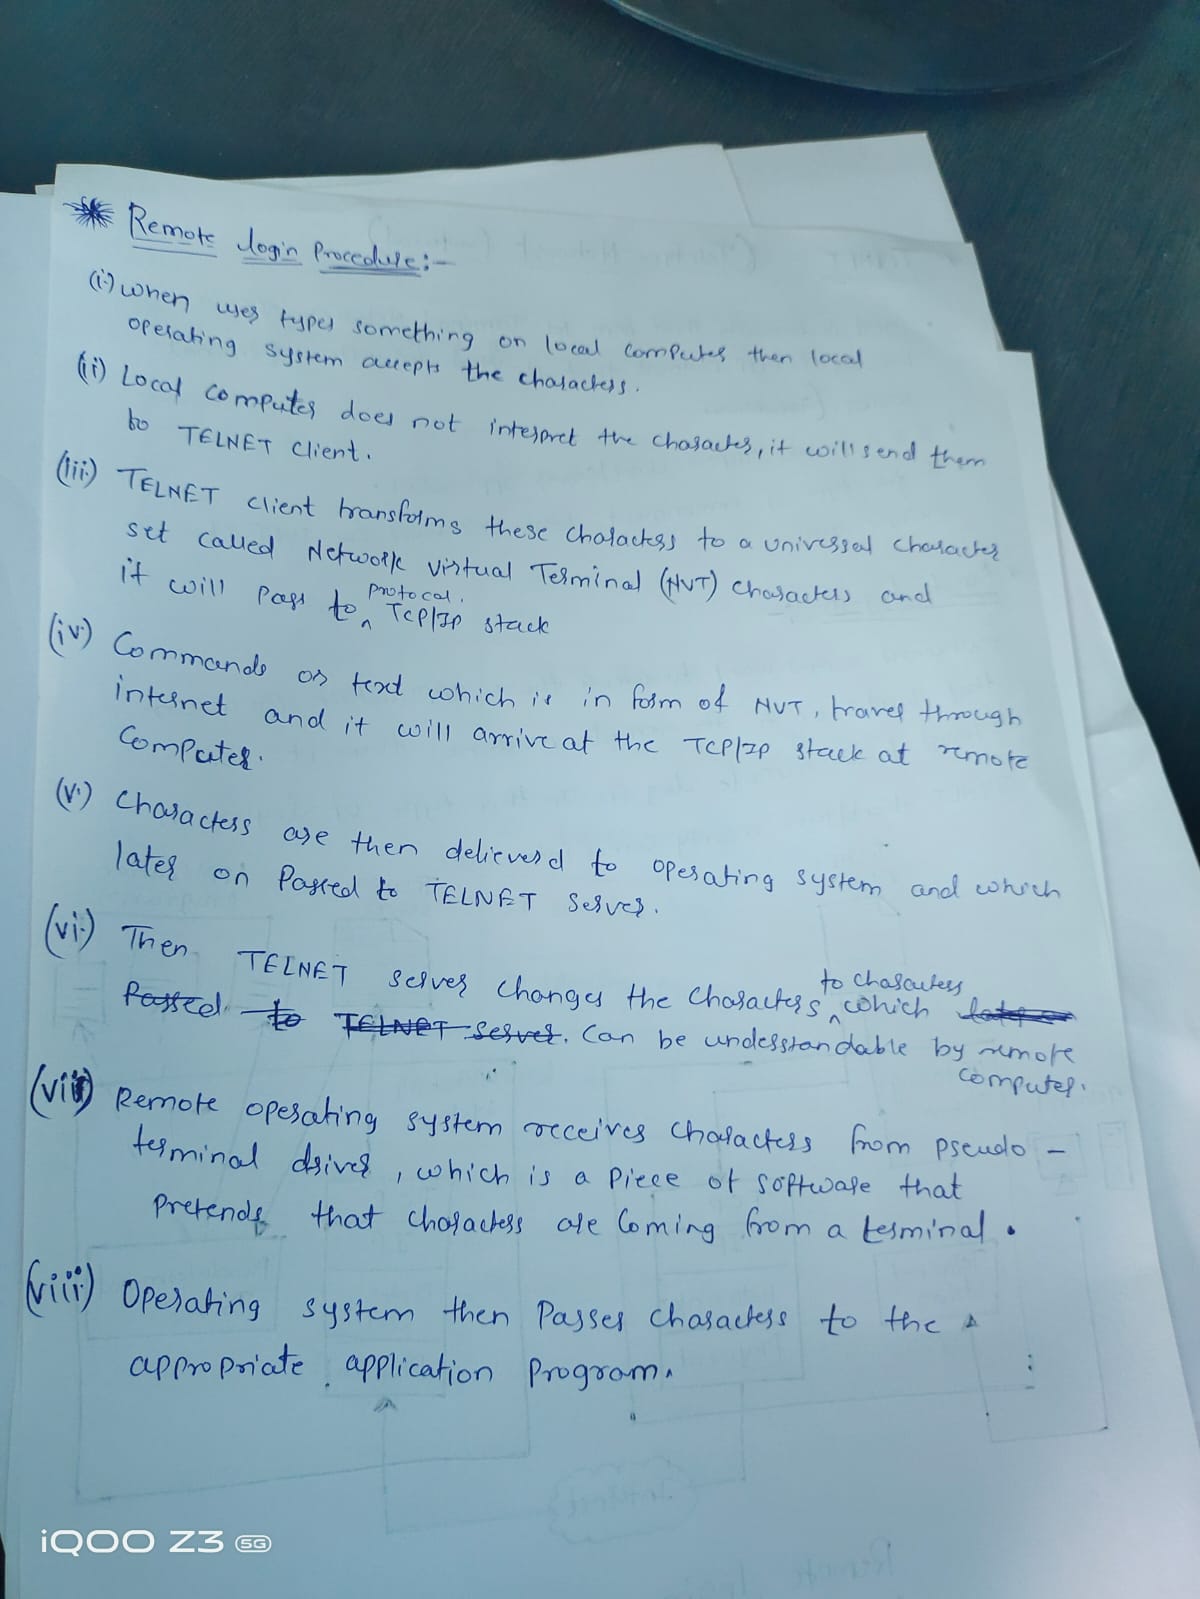 Remote login Procedure:-
(i) when user types something on local computer then local
operating system accepts the characters.
(ii) Local computer does not interpret the character, it will send them
to TELNET client.
(iii) TELNET client transforms these characters to a universal character
set called Network virtual Terminal (NVT) characters and
it will pass to protocal. TCP/IP stack
(iv) Commands or text which is in form of NVT, travel through
internet and it will arrive at the TCP/IP stack at remote
Computer.
(v) Characters are then delieverd to operating system and which
later on Passed to TELNET Server.
(vi) Then TELNET server changes the characters to characters which
Passed to TELNET Server. Can be understandable by remote
computer.
(vii) Remote operating system receives characters from pseudo -
terminal driver, which is a piece of software that
pretends that characters are coming from a terminal.
(viii) Operating system then Passes characters to the
appropriate application Program.
iQOO Z3 5G